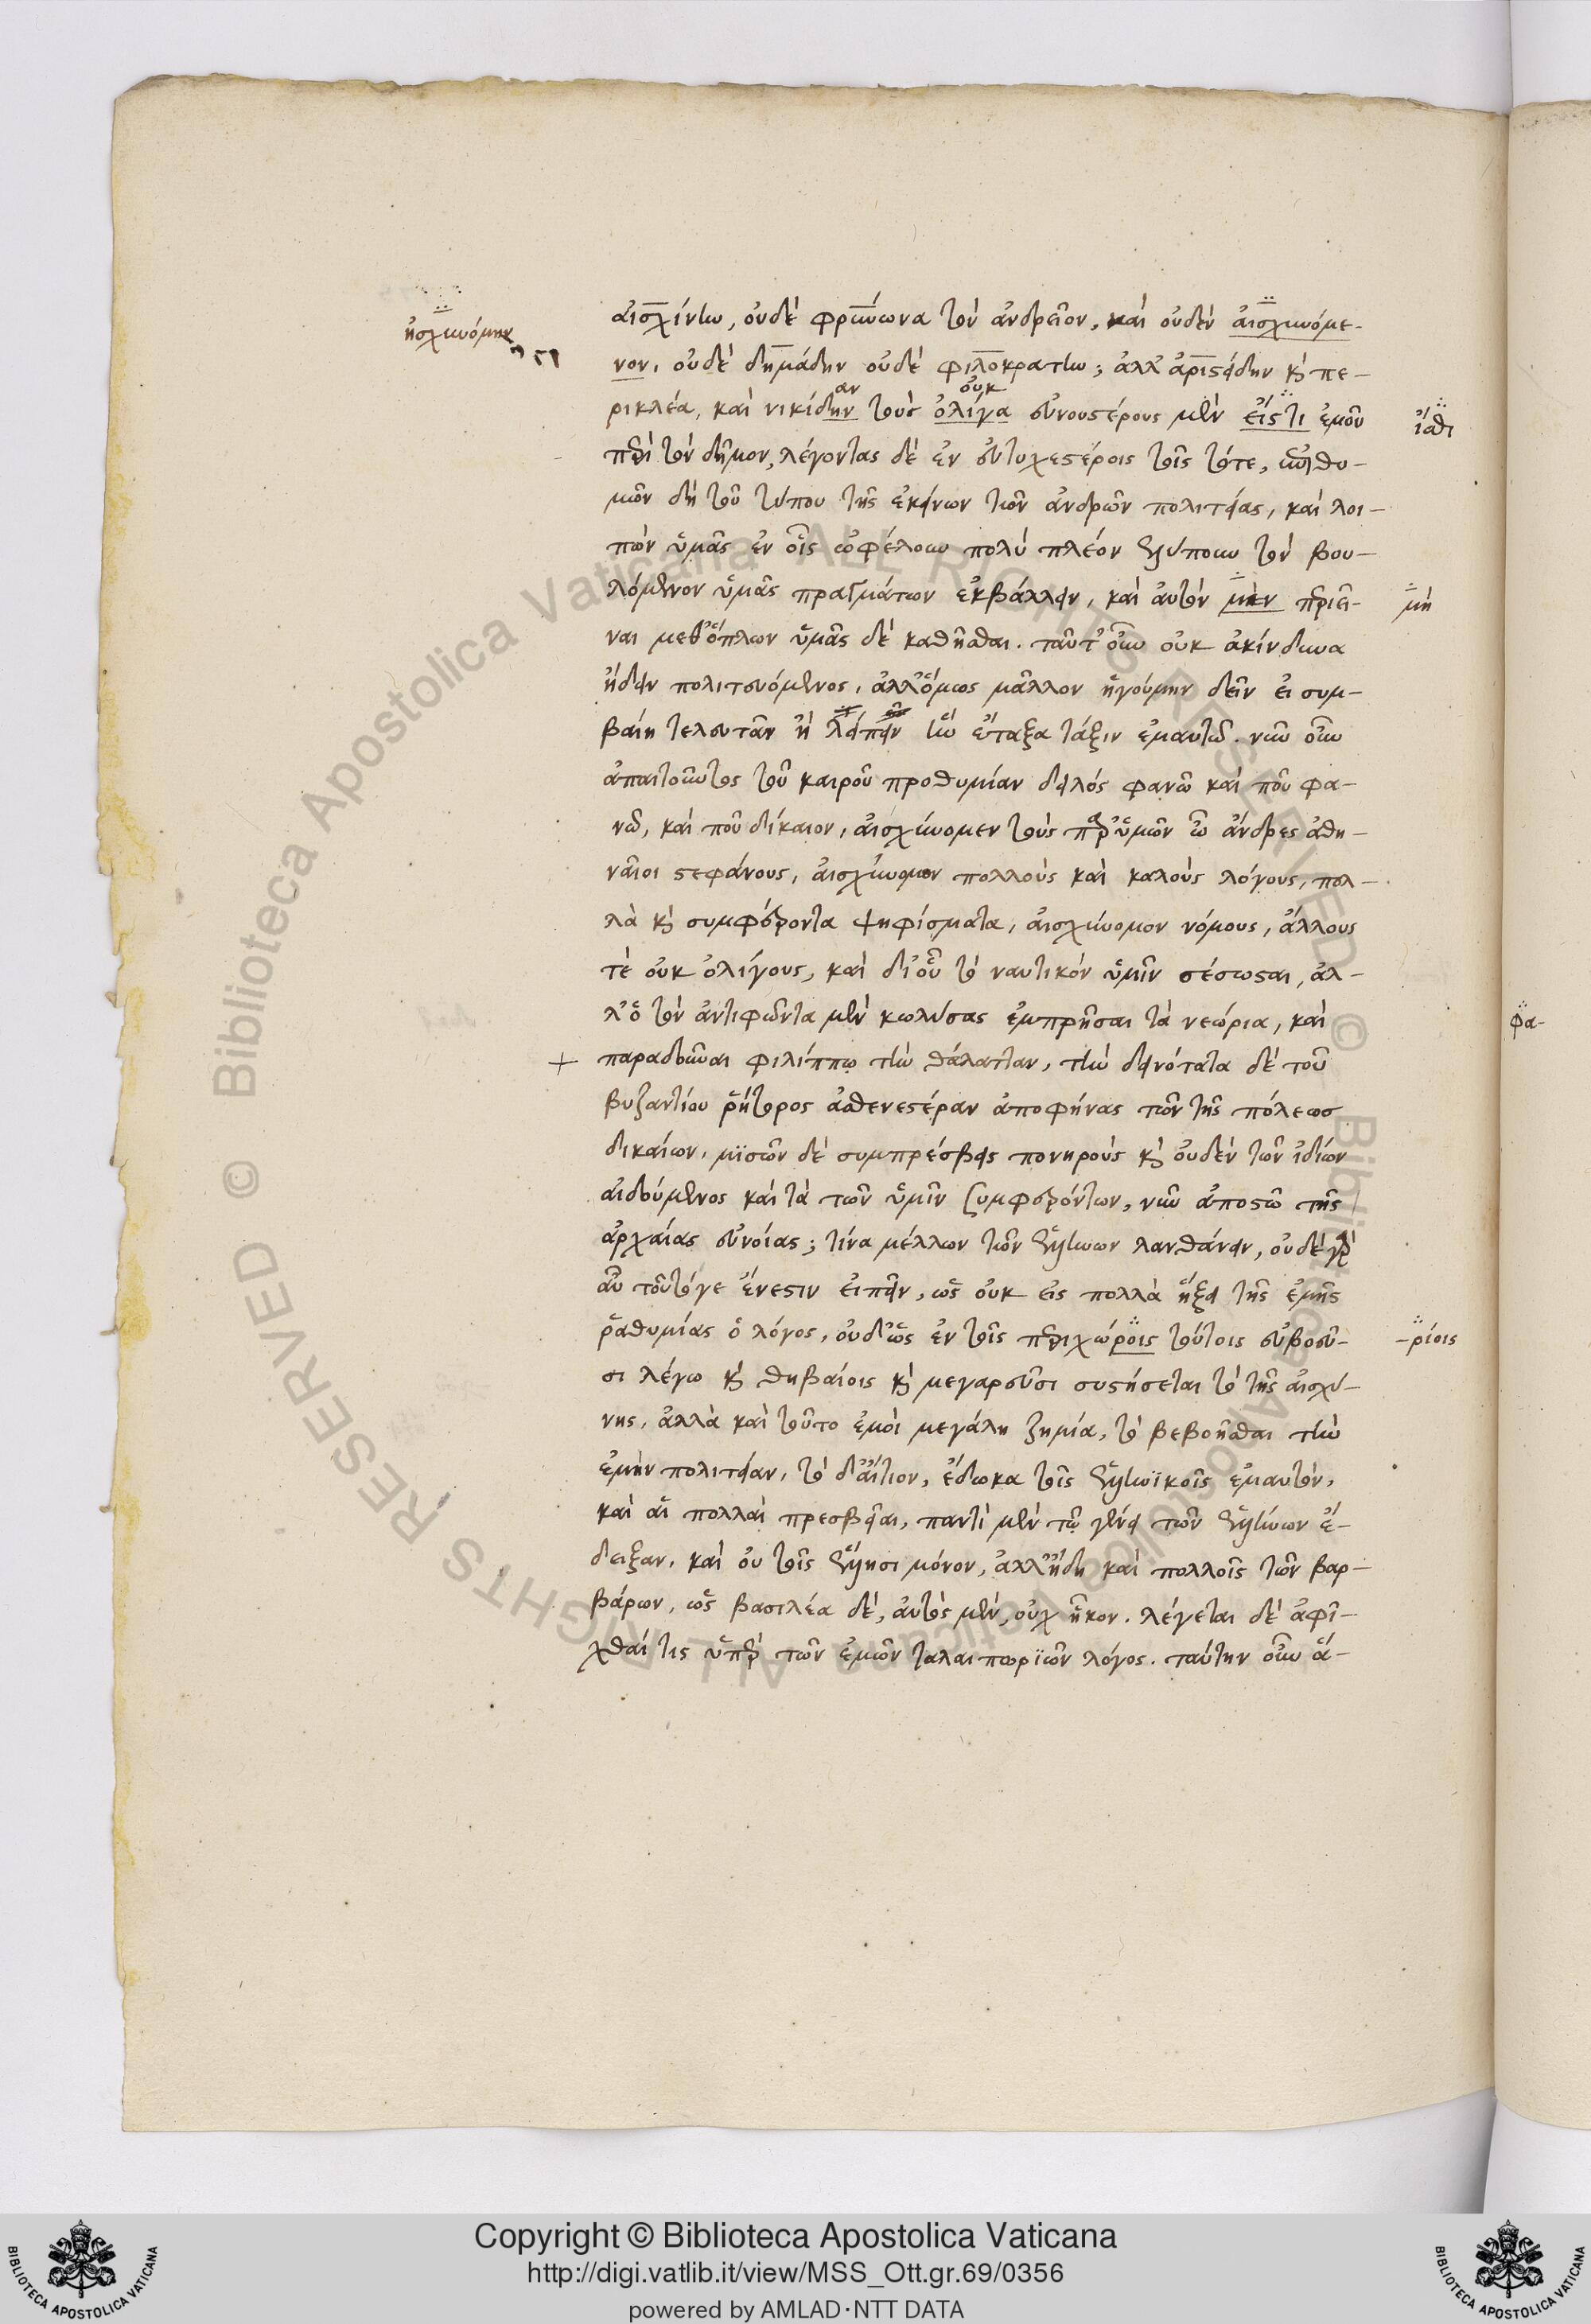 αἰσχίνην, οὐδὲ φρύνωνα τὸν ἀνδρεῖον, καὶ οὐδὲν αἰσχυνόμε-
ἠσχυνόμην
νον, οὐδὲ δημάδην οὐδὲ φιλοκράτην; ἀλλ' ἀριστείδην καὶ πε-
αν οὐκ
ρικλέα, καὶ νικίδην τοὺς ὀλίγα εὐνουστέρους μὲν εἴς τι ἐμοῦ
ἴσθι
περὶ τὸν δῆμον, λέγοντας δὲ ἐν εὐτυχεστέροις τοῖς τότε,
μῶν δὴ τοῦ τύπου τῆς ἐκείνων τῶν ἀνδρῶν πολιτείας, καὶ λοι-
πὸν ὑμᾶς ἐν οἷς ὠφέλουν πολὺ πλέον ἐλύπουν τὸν βου-
λόμενον ὑμᾶς πραγμάτων ἐκβάλλειν, καὶ αὐτὸν μὲν περιεῖ-
μὴ
ναι μεθ' ὅπλων ὑμᾶς δὲ καθῆσθαι. ταῦτ' οὖν οὐκ ἀκίνδυνα
ᾔδειν πολιτευόμενος, ἀλλ' ὅμως μᾶλλον ἡγούμην δεῖν εἰ συμ-
βαίη τελευτᾶν ἢ λείπειν ἣν ἔταξα τάξιν ἐμαυτῷ. νῦν οὖν
ἀπαιτοῦντος τοῦ καιροῦ προθυμίαν δειλὸς φανῶ καὶ ποῦ φα-
νῶ, καὶ ποῦ δίκαιον, αἰσχύνομεν τοὺς παρ' ὑμῶν ὦ ἄνδρες ἀθη-
ναῖοι στεφάνους, αἰσχύνομεν πολλοὺς καὶ καλοὺς λόγους, πολ-
λὰ καὶ συμφέροντα ψηφίσματα, αἰσχύνομεν νόμους, ἄλλους
τὲ οὐκ ὀλίγους, καὶ δι' οὗ τὸ ναυτικὸν ὑμῖν σέσωσται, ἀλ-
λ' ὁ τὸν ἀντιφῶντα μὲν κωλύσας ἐμπρῆσαι τὰ νεώρια, καὶ
φα-
παραδοῦναι φιλίππῳ τὴν θάλατταν, τὴν δεινότατα δὲ τοῦ
βυζαντίου ῥήτορος ἀσθενεστέραν ἀποφήνας τῶν τῆς πόλεως
δικαίων, μισῶν δὲ συμπρέσβεις πονηροὺς καὶ οὐδὲν τῶν ἰδίων
αἰδούμενος καὶ τὰ τῶν ὑμῖν συμφερόντων, νῦν ἀποστῶ τῆς
ἀρχαίας εὐνοίας; τίνα μέλλων τῶν ἑλλήνων λανθάνειν, οὐδὲ γὰρ
ἂν τοῦτό γε ἔνεστιν εἰπεῖν, ὡς οὐκ εἰς πολλὰ ἥξει τῆς ἐμῆς
ῥαθυμίας ὁ λόγος, οὐδ' ὡς ἐν τοῖς περιχώροις τούτοις εὐβοεῦ-
-ρίοις
σι λέγω καὶ θηβαίοις καὶ μεγαρεῦσι συστήσεται τὸ τῆς αἰσχύ-
νης, ἀλλὰ καὶ τοῦτο ἐμοὶ μεγάλη ζημία, τὸ βεβοῆσθαι τὴν
ἐμὴν πολιτείαν, τὸ δ' αἴτιον, ἔδωκα τοῖς ἑλληνικοῖς ἐμαυτὸν,
καὶ αἱ πολλαὶ πρεσβεῖαι, παντὶ μὲν τῷ γένει τῶν ἑλλήνων ἔ-
δειξαν, καὶ οὐ τοῖς ἕλλησι μόνον, ἀλλ' ἤδη καὶ πολλοῖς τῶν βαρ-
βάρων, ὡς βασιλέα δὲ, αὐτὸς μὲν, οὐχ ἧκον. λέγεται δὲ ἀφῖ-
χθαί τις ὑπὲρ τῶν ἐμῶν ταλαιπωριῶν λόγος. ταύτην οὖν ἅ-
Copyright © Biblioteca Apostolica Vaticana
http://digi.vatlib.it/view/MSS_Ott.gr.69/0356
powered by AMLAD·NTT DATA